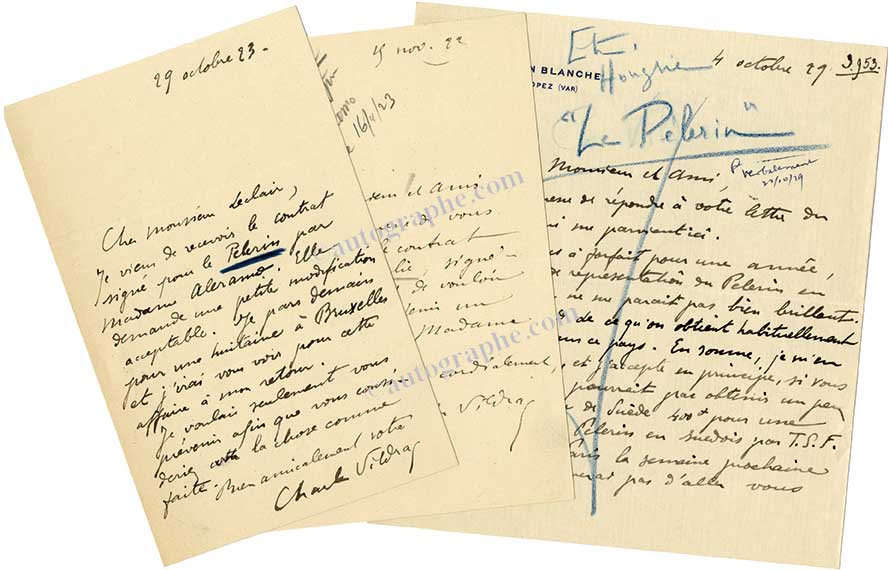 29 octobre 23.
Cher Monsieur Leclair,
Je viens de recevoir le contrat
signé pour le Pelerin par
Madame Aleramo. Elle
demande une petite modification
acceptable. Je pars demain
pour une huitaine à Bruxelles
et j'irai vous voir pour cette
affaire à mon retour.
Je voulais seulement vous
prévenir afin que vous consi-
deriez la chose comme
faite. Bien amicalement votre
Charles Vildrac
15 nov. 22
16/4/23
et Ami
de vous
le contrat
signé
de vouloir
un
Madame
cordialement,
Vildrac
N BLANCHE
OPEZ (VAR)
Et.
Hongrie
4 octobre 29
3.953.
"Le Pèlerin"
Monsieur et Ami,
verbalement
22/10/29
de répondre à votre lettre du
me parvient ici.
à forfait pour une année,
représentation du Pelerin en
ne me parait pas bien brillant.
de ce qu'on obtient habituellement
ce pays. En somme, je m'en
et j'accepte en principe, si vous
pourrait pas obtenir un peu
de Suède 400 pour une
Pelerin en suedois par T.S.F.
Paris la semaine prochaine
pas d'aller vous
© autographe.com
© autographe.com